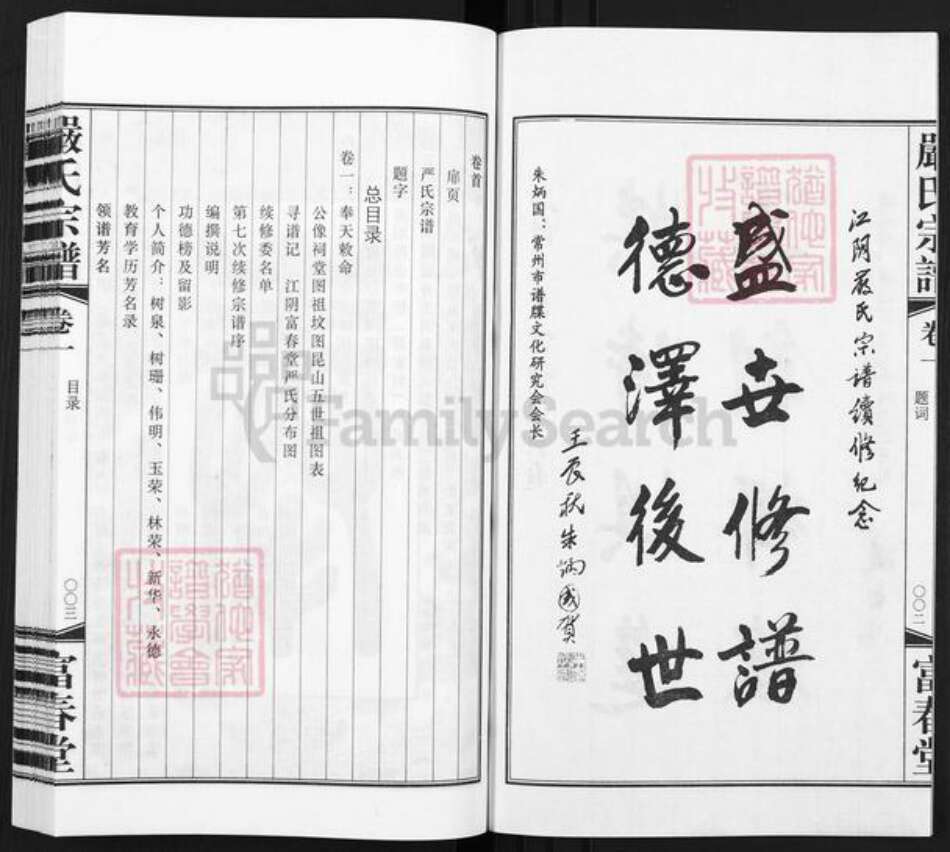 嚴氏宗譜
卷一
题词
〇〇二
富春堂
江阴严氏宗谱續修纪念
盛世修譜
德澤後世
壬辰秋朱炳國贺
朱炳国：常州市谱牒文化研究会会长
卷首
扉页
严氏宗谱
题字
总目录
卷一：奉天敕命
公像祠堂图祖坟图昆山五世祖图表
寻谱记 江阴富春堂严氏分布图
第七次续修宗谱序
续修委名单
编撰说明
功德榜及留影
个人简介：树泉、树珊、伟明、玉荣、林荣、新华、永德
教育学历芳名录
领谱芳名
嚴氏宗譜
卷一
目录
〇〇三
富春堂
FamilySearch